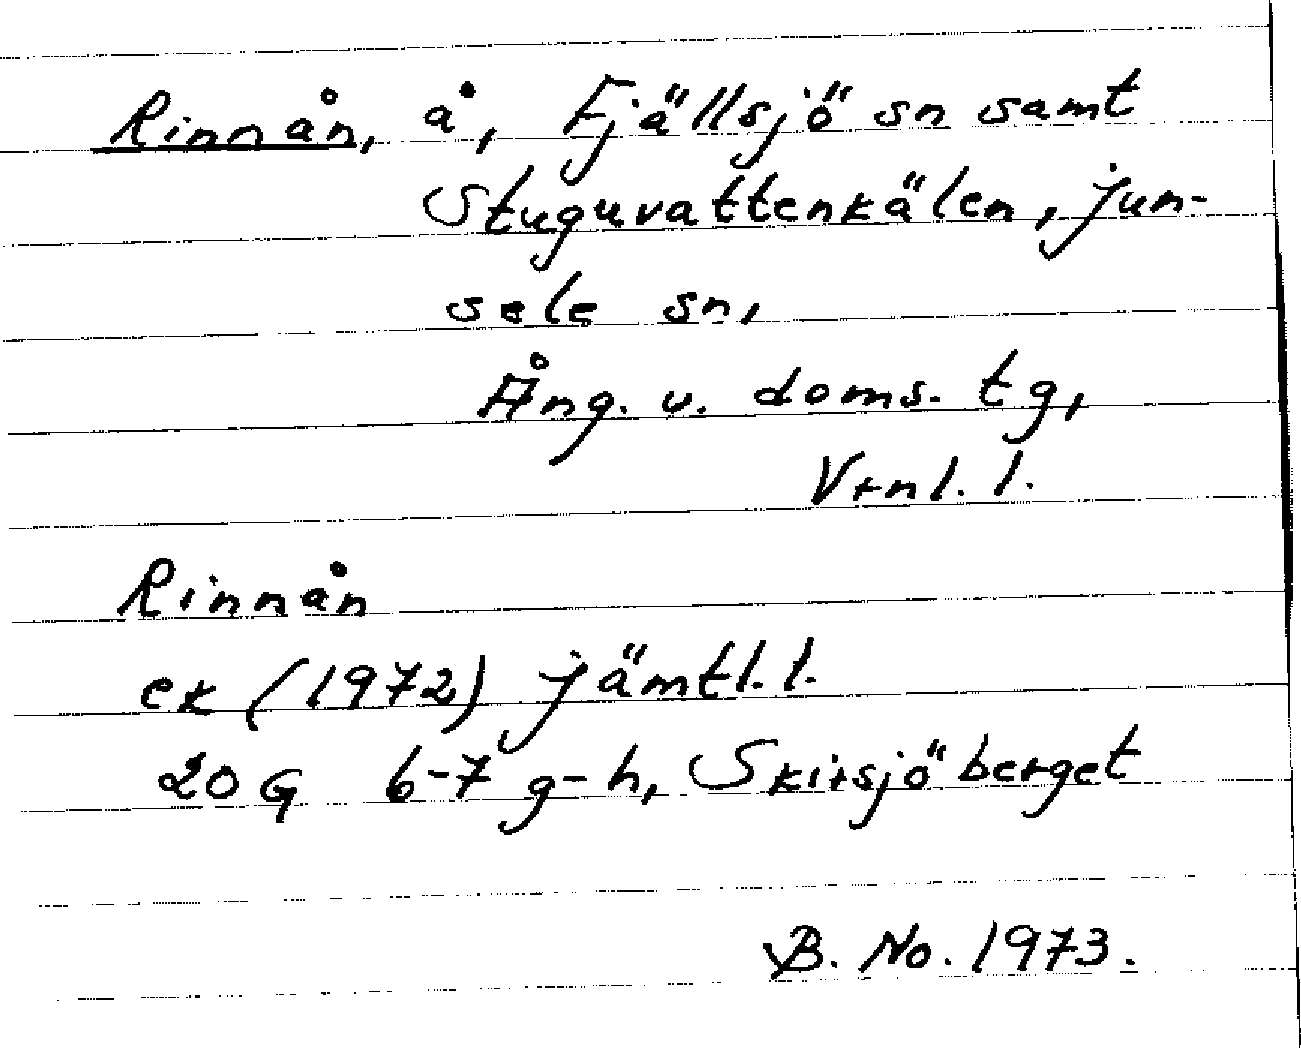 Rinnån, å, Fjällsjö sn samt
Stuguvattenkälen, Jun-
sele sn,
Ång. v. doms. tg,
Vrnl. l.
Rinnån
ek (1972) Jämtl. l.
20 G 6-7 g-h, Skirsjöberget
B. No. 1973.